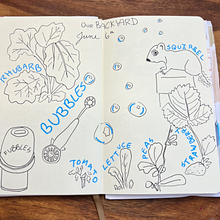 Our BACKYARD
June 6th
SQUIRREL
RHUBARB
BUBBLES
BUBBLES
TOMATO
LETTUCE
PEAS